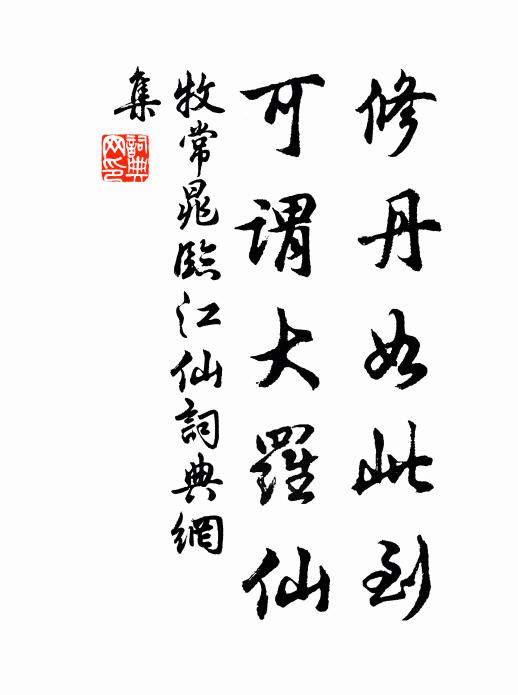 修丹如此到
可謂大羅仙
牧常晁臨江仙詞典網
集
詞典
网印